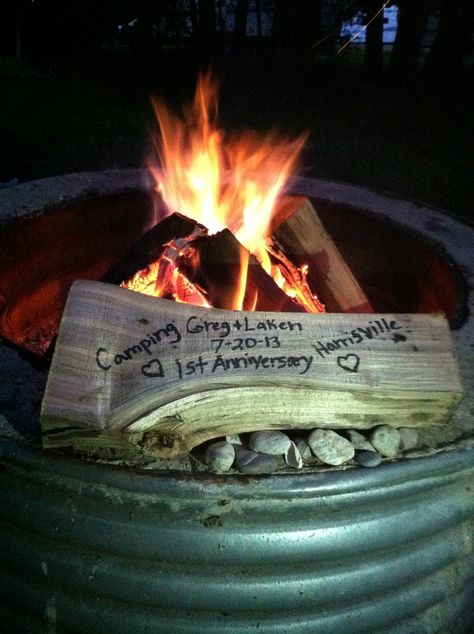 Camping Greg + Laken Harrisville
7-20-13
♡ 1st Anniversary ♡